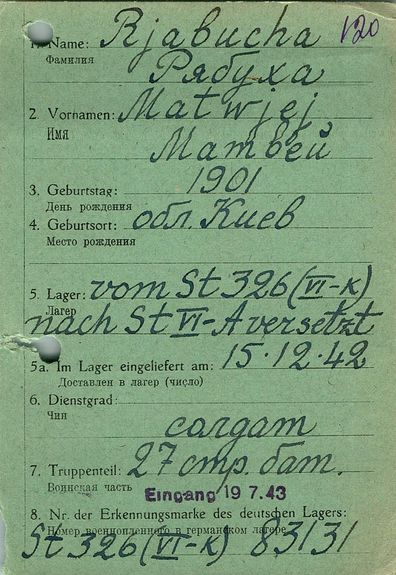 120
1. Name: Rjabucha
Фамилия
Рябуха
2. Vornamen: Matwjej
Имя
Матвей
3. Geburtstag: 1901
День рождения
4. Geburtsort: обл. Киев
Место рождения
5. Lager: vom St 326 (VI-K)
Лагер
nach St VI-A versetzt
5a. Im Lager eingeliefert am: 15.12.42
Доставлен в лагер (число)
6. Dienstgrad:
Чин
солдат
7. Truppenteil: 27 стр. бат.
Воинская часть
Eingang 19 7.43
8. Nr. der Erkennungsmarke des deutschen Lagers:
Номер военнопленного в германском лагере
St 326 (VI-K) 83131